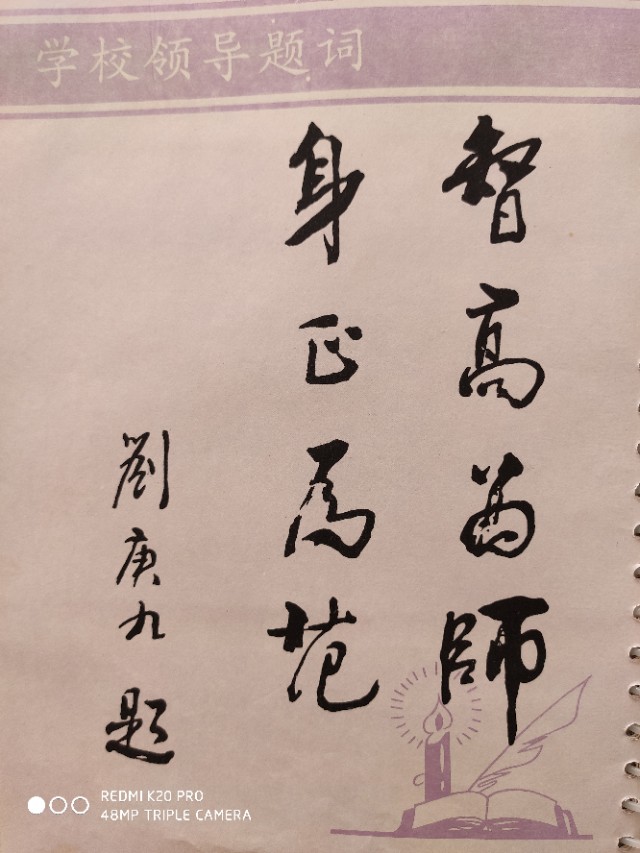 学校领导题词
智高为師
身正為范
劉庚九题
REDMI K20 PRO
48MP TRIPLE CAMERA